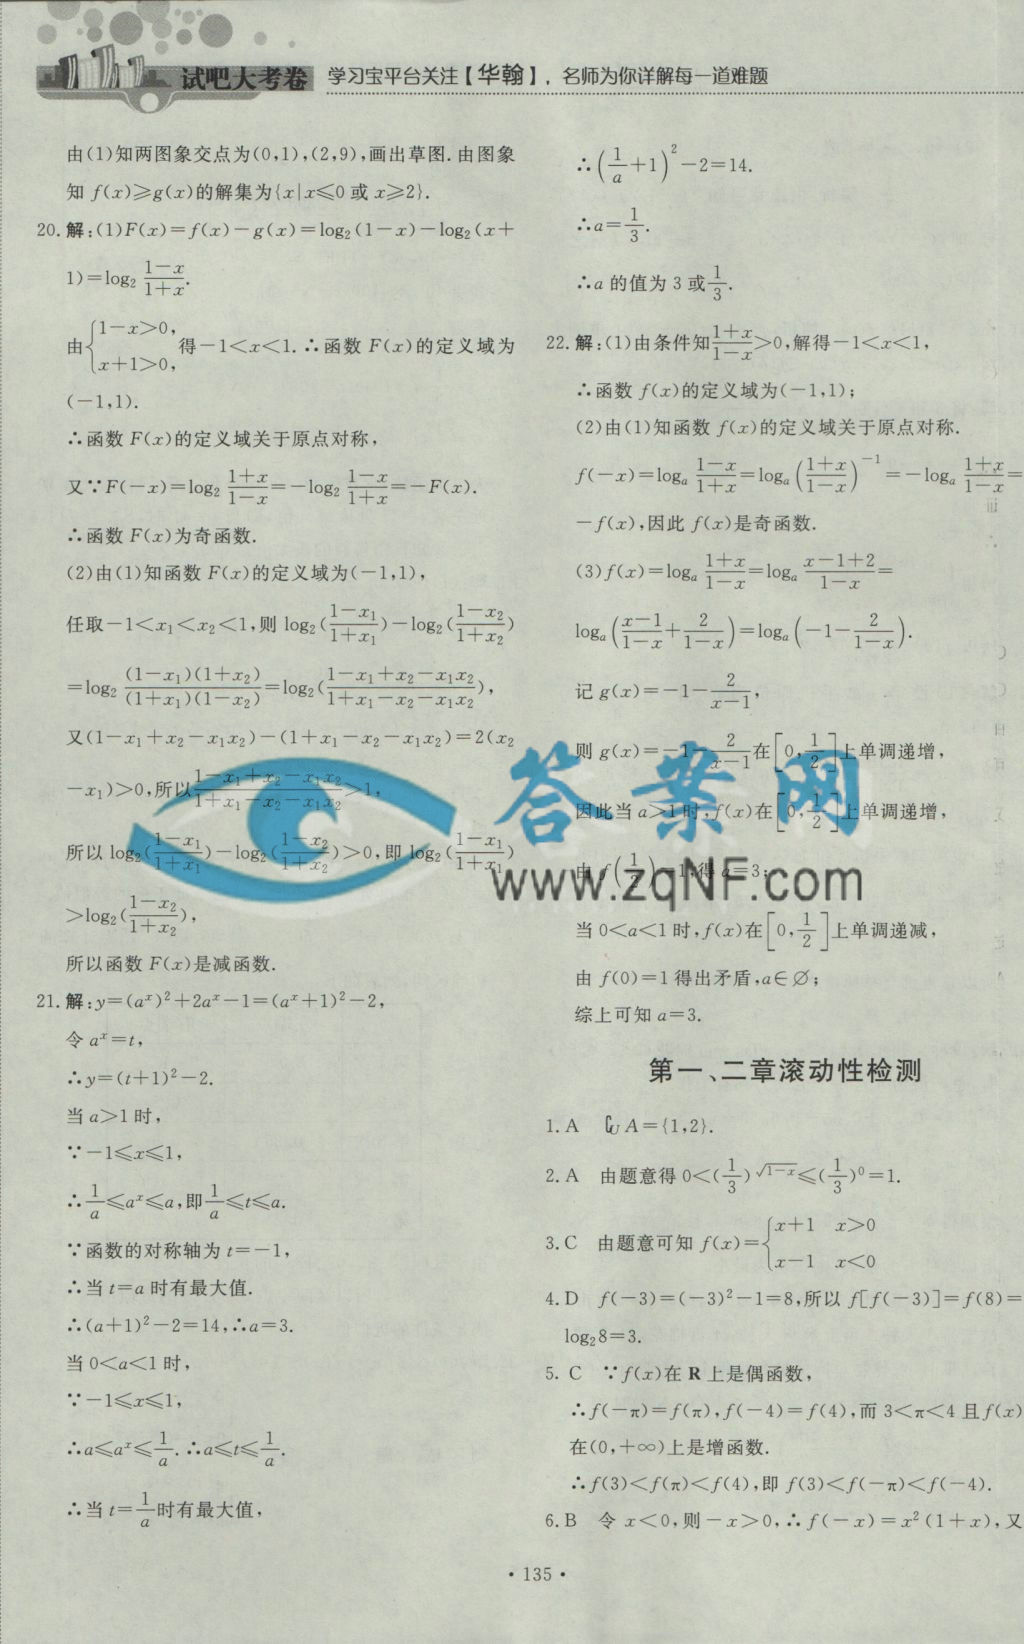 试吧大考卷 学习宝平台关注【华翰】，名师为你详解每一道难题
由(1)知两图象交点为(0,1),(2,9),画出草图.由图象
知 f(x)≥g(x)的解集为{x|x≤0或x≥2}.
20.解:(1)F(x)=f(x)-g(x)=log₂(1-x)-log₂(x+
1)=log₂ (1-x)/(1+x).
由{1-x>0, x+1>0, 得-1<x<1.∴函数 F(x)的定义域为
(-1,1).
∴函数 F(x)的定义域关于原点对称,
又∵F(-x)=log₂ (1+x)/(1-x)=-log₂ (1-x)/(1+x)=-F(x).
∴函数 F(x)为奇函数.
(2)由(1)知函数 F(x)的定义域为(-1,1),
任取-1<x₁<x₂<1,则 log₂((1-x₁)/(1+x₁))-log₂((1-x₂)/(1+x₂))
=log₂ (1-x₁)(1+x₂)/(1+x₁)(1-x₂)=log₂((1-x₁+x₂-x₁x₂)/(1+x₁-x₂-x₁x₂)),
又(1-x₁+x₂-x₁x₂)-(1+x₁-x₂-x₁x₂)=2(x₂
-x₁)>0,所以(1-x₁+x₂-x₁x₂)/(1+x₁-x₂-x₁x₂)>1,
所以 log₂((1-x₁)/(1+x₁))-log₂((1-x₂)/(1+x₂))>0,即 log₂((1-x₁)/(1+x₁))
>log₂((1-x₂)/(1+x₂)),
所以函数 F(x)是减函数.
21.解:y=(aˣ)²+2aˣ-1=(aˣ+1)²-2,
令 aˣ=t,
∴y=(t+1)²-2.
当 a>1 时,
∵-1≤x≤1,
∴1/a≤aˣ≤a,即1/a≤t≤a.
∵函数的对称轴为 t=-1,
∴当 t=a 时有最大值.
∴(a+1)²-2=14,∴a=3.
当 0<a<1 时,
∵-1≤x≤1,
∴a≤aˣ≤1/a.∴a≤t≤1/a.
∴当 t=1/a时有最大值,
∴(1/a+1)²-2=14.
∴a=1/3.
∴a 的值为 3 或1/3.
22.解:(1)由条件知(1+x)/(1-x)>0,解得-1<x<1,
∴函数 f(x)的定义域为(-1,1);
(2)由(1)知函数 f(x)的定义域关于原点对称.
f(-x)=logₐ (1-x)/(1+x)=logₐ((1+x)/(1-x))⁻¹=-logₐ (1+x)/(1-x)=
-f(x),因此 f(x)是奇函数.
(3)f(x)=logₐ (1+x)/(1-x)=logₐ (x-1+2)/(1-x)=
logₐ((x-1)/(1-x)+2/(1-x))=logₐ(-1-2/(1-x)).
记 g(x)=-1-2/(x-1),
则 g(x)=-1-2/(x-1)在[0,1/2]上单调递增,
因此当 a>1 时,f(x)在[0,1/2]上单调递增,
由 f(1/2)=1,得 a=3;
当 0<a<1 时,f(x)在[0,1/2]上单调递减,
由 f(0)=1 得出矛盾,a∈∅;
综上可知 a=3.
第一、二章滚动性检测
1.A ∁ᵤA={1,2}.
2.A 由题意得 0<(1/3)^√(1-x)≤(1/3)⁰=1.
3.C 由题意可知 f(x)={x+1 x>0 x-1 x<0
4.D f(-3)=(-3)²-1=8,所以 f[f(-3)]=f(8)=
log₂8=3.
5.C ∵f(x)在 R 上是偶函数,
∴f(-π)=f(π),f(-4)=f(4),而 3<π<4 且 f(x)
在(0,+∞)上是增函数.
∴f(3)<f(π)<f(4),即 f(3)<f(-π)<f(-4).
6.B 令 x<0,则-x>0,∴f(-x)=x²(1+x),又
答案网
www.zqNF.com
·135·